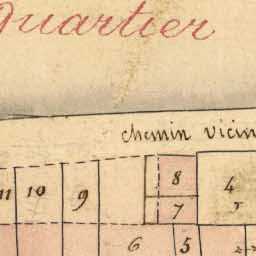 Quartier
chemin vicin
8
4
11 10 9
7
6 5